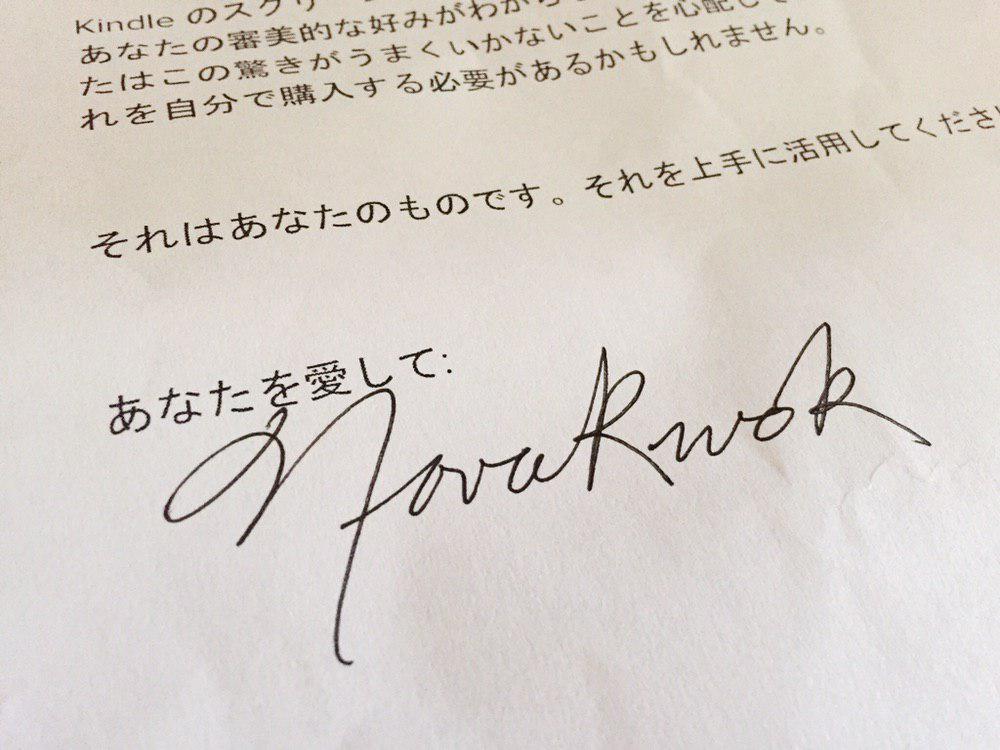 Kindle のスクリー
あなたの審美的な好みがわから
たはこの驚きがうまくいかないことを心配して
れを自分で購入する必要があるかもしれません。
それはあなたのものです。それを上手に活用してくださ
あなたを愛して:
Nova Kwok